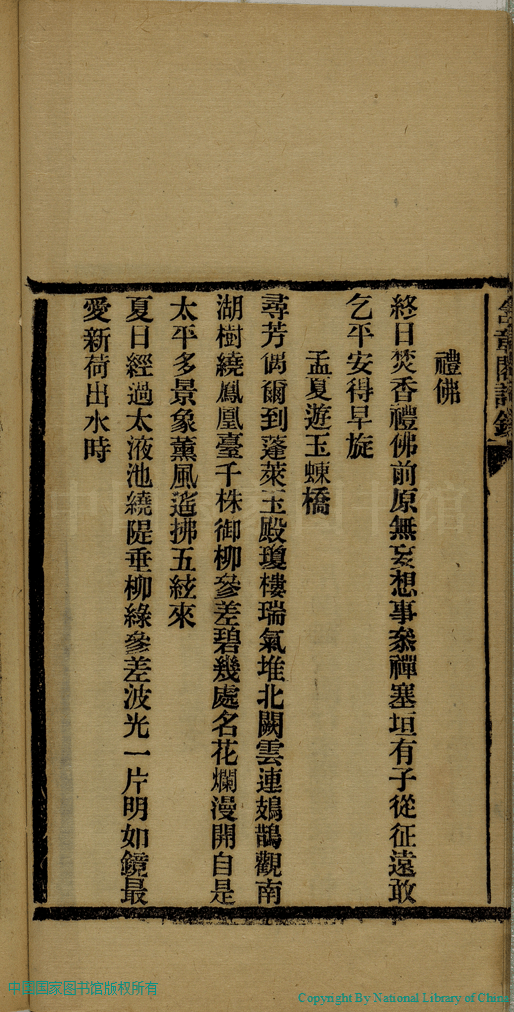 禮佛
終日焚香禮佛前原無妄想事參禪塞垣有子從征遠敢
乞平安得早旋
孟夏遊玉蝀橋
尋芳偶爾到蓬萊玉殿瓊樓瑞氣堆北闕雲連鳷鵲觀南
湖樹繞鳳凰臺千株御柳參差碧幾處名花爛漫開自是
太平多景象薰風遙拂五絃來
夏日經過太液池繞隄垂柳綠參差波光一片明如鏡最
愛新荷出水時
中国国家图书馆版权所有
Copyright By National Library of China